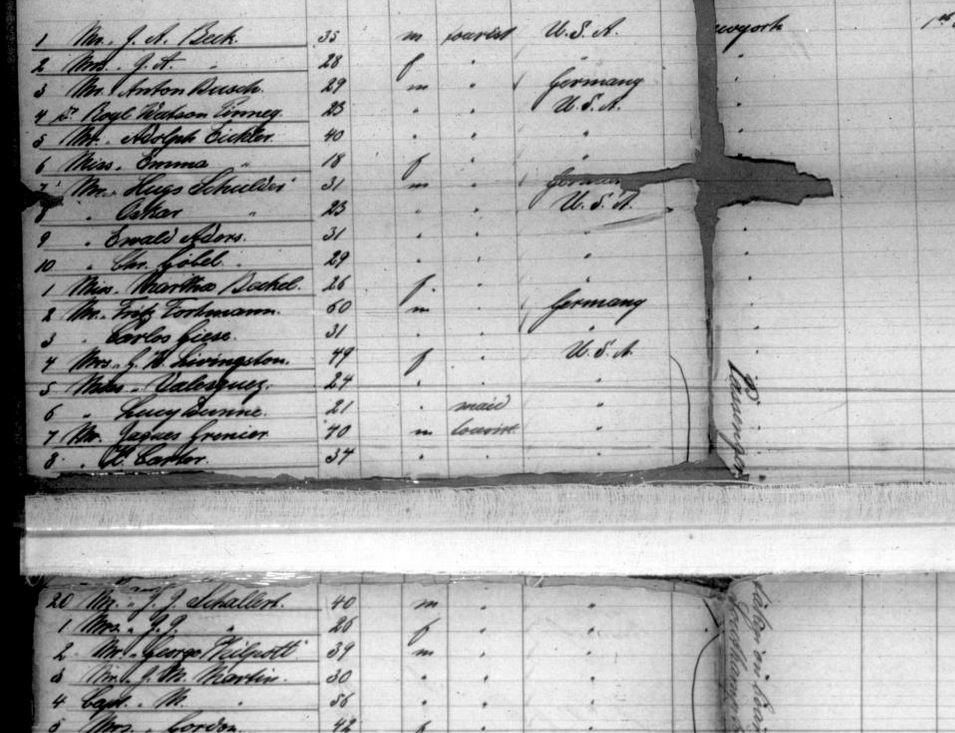 1 Mr. J. A. Beck. 35 m tourist U.S.A. ewyork 1st
2 Mrs. J. A. " 28 f " "
3 Mr. Anton Busch. 29 m " Germany "
4 Dr. Watson 23 " " U.S.A. "
5 Mr. Adolph Eickler. 40 " " " "
6 Miss. Emma " 18 f " "
7 Mr. Hugo 31 m "
8 " Oskar " 23 " " U.S.A. "
9 " Ewald Aders. 31 " " " "
10 " Chr. Göbel. 29 " " " "
1 Miss. Martha Beckel. 26 f " " "
2 Mr. Fritz Fortmann. 60 m " Germany "
3 " Carlos Giese. 31 " " " "
4 Mrs. Livingston. 49 f " U.S.A. "
5 Miss. 24 " " "
6 " Lucy Dunne. 21 " maid "
7 Mr. Jaques Grenier. 40 m tourist "
8 " Carter. 34 " " "
20 Mr. J. J. Schallert. 40 m " "
1 Mrs. J. J. " 26 f " "
2 Mr. George 39 m " "
3 Mr. J. M. Martin. 30 " " "
4 Capt. M. " 56 " " "
5 Mrs. Gordon. 42 f " "